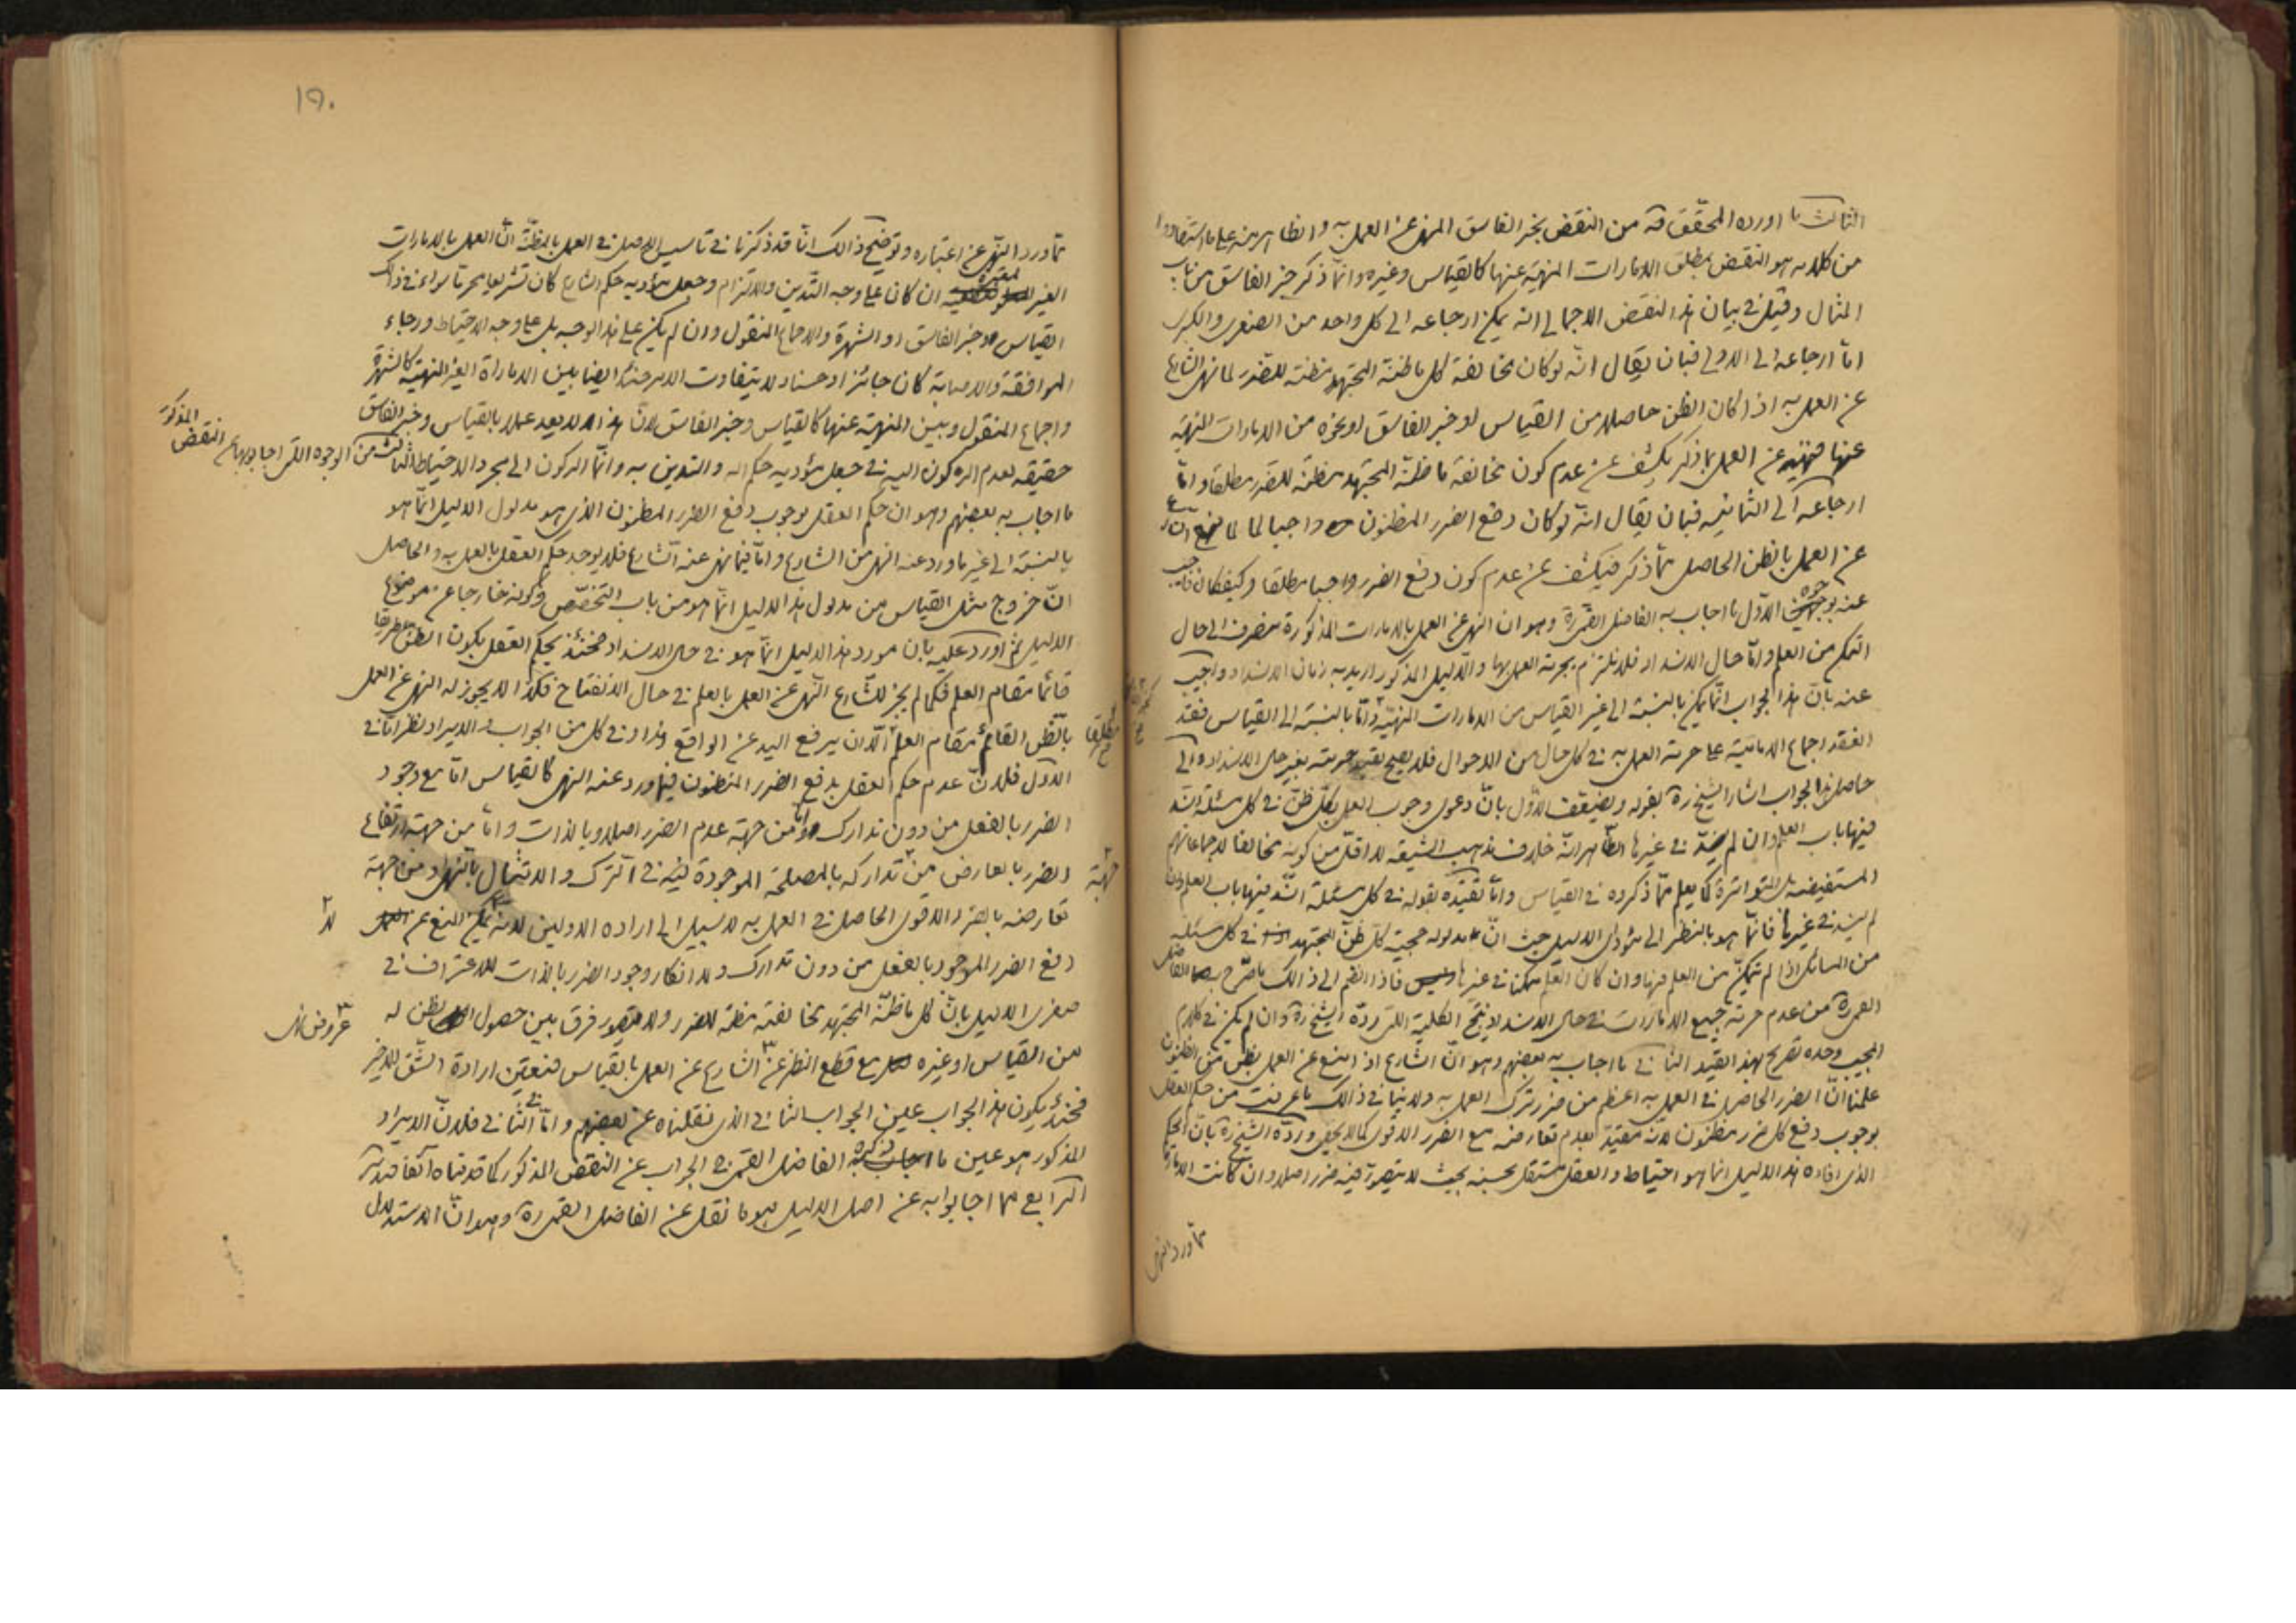 الثالث ما اورده المحقق قه من النقض بخبر الفاسق المنهى عن العمل به والظاهر منه على ما استفادوا
من كلامه هو النقض بمطلق الامارات المنهية عنها كالقياس وغيره وانما ذكر خبر الفاسق من باب
المثال وقيل فى بيان هذا النقض الاجمالى انه يمكن ارجاعه الى كل واحد من الصغرى والكبرى
اما ارجاعه الى الاولى فبان يقال انه لو كان مخالفة كل ما ظنه المجتهد مظنة للضرر لما نهى الشارع
عن العمل به اذا كان الظن حاصلا من القياس او خبر الفاسق او نحوه من الامارات المنهية
عنها فنهيه عن العمل بما ذكر يكشف عن عدم كون مخالفة ما ظنه المجتهد مظنة للضرر مطلقا واما
ارجاعه الى الثانية فبان يقال انه لو كان دفع الضرر المظنون واجبا لما
عن العمل بالظن الحاصل مما ذكر فيكشف عن عدم كون دفع الضرر واجبا مطلقا وكيفكان فاجيب
عنه بوجوه الاول ما اجاب به الفاضل القمى ره وهو ان النهى عن العمل بالامارات المذكورة منصرف الى حال
التمكن من العلم واما حال الانسداد فلا نلتزم بحرمة العمل بها والدليل المذكور اريد به زمان الانسداد واجيب
عنه بان هذا الجواب انما يمكن بالنسبة الى غير القياس من الامارات المنهية واما بالنسبة الى القياس فقد
انعقد اجماع الامامية على حرمة العمل به فى كل حال من الاحوال فلا يصح تقييد حرمته بغير حال الانسداد والى
حاصل هذا الجواب اشار الشيخ ره بقوله ويضعف الاول بان دعوى وجوب العمل بكل ظن فى كل مسئلة انسد
فيها باب العلم وان لم ينسد فى غيرها الظاهر انه خلاف مذهب الشيعة لا اقل من كونه مخالفا لاجماعاتهم
المستفيضة بل المتواترة كما يعلم مما ذكروه فى القياس واما تقييده بقوله فى كل مسئلة انسد فيها باب العلم وان
لم ينسد فى غيرها فانما هو بالنظر الى مؤدى الدليل حيث ان مدلوله حجية كل ظن المجتهد فى كل مسئلة
من المسائل اذا لم يتمكن من العلم فيها وان كان العلم ممكنا فى غيرها فاذا انضم الى ذالك ما صرح به الفاضل
القمى ره من عدم حرمة جميع الامارات فى حال الانسداد ينتج الكلية التى رده الشيخ ره وان لم يكن فى كلام
المجيب وحده تصريح بهذا القيد الثانى ما اجاب به بعضهم وهو ان الشارع اذا منع عن العمل بظن من الظنون
علمنا ان الضرر الحاصل فى العمل به اعظم من ضرر ترك العمل به ولا ينافى ذالك ما عرفت من حكم العقل
بوجوب دفع كل ضرر مظنون لانه مقيد بعدم تعارضه مع الضرر الاقوى كما لا يخفى ورده الشيخ ره بان الحكم
الذى افاده هذا الدليل انما هو احتياط والعقل مستقل بحسنه بحيث لا يتصور فيه ضرر اصلا وان كانت الامارة
مما ورد النهى
١٥٠
مما ورد النهى عن اعتباره وتوضيح ذالك انا قد ذكرنا فى تاسيس الاصل فى العمل بالمظنة ان العمل بالامارات
الغير المعتبرة ان كان على وجه التدين والالتزام وجعل مؤديه حكم الشارع كان تشريعا محرما سواء فى ذالك
القياس وخبر الفاسق او الشهرة والاجماع المنقول وان لم يكن على هذا الوجه بل على وجه الاحتياط ورجاء
الموافقة والاصابة كان جائزا وحسنا ولا يتفاوت الامر حينئذ ايضا بين الامارات الغير المنهية كالشهرة
واجماع المنقول وبين المنهية عنها كالقياس وخبر الفاسق لان هذا لا يعد عملا بالقياس وخبر الفاسق
حقيقة لعدم الركون اليه فى جعل مؤديه حكم الله والتدين به وانما الركون الى مجرد الاحتياط الثالث من الوجوه التى اجابوا بها عن النقض المذكور
ما اجاب به بعضهم وهو ان حكم العقل بوجوب دفع الضرر المظنون الذى هو مدلول الدليل انما هو
بالنسبة الى غير ما ورد عنه النهى من الشارع واما فيما نهى عنه الشارع فلا يوجد حكم العقل بالعمل به والحاصل
ان خروج مثل القياس من مدلول هذا الدليل انما هو من باب التخصص وكونه خارجا عن موضوع
الدليل ثم اورد عليه بان مورد هذا الدليل انما هو فى حال الانسداد فحينئذ يحكم العقل بكون الظن طريقا
قائما مقام العلم فكما لم يجز للشارع النهى عن العمل بالعلم فى حال الانفتاح فكذا لا يجوز له النهى عن العمل
بالظن القائم مقام العلم الا ان يرفع اليد عن الواقع مطلقا وفى كل من الجواب والايراد نظر اما فى
الاول فلان عدم حكم العقل بدفع الضرر المظنون فيما ورد عنه النهى كالقياس اما مع وجود
الضرر بالفعل من دون تدارك واما من جهة عدم الضرر اصلا وبالذات واما من جهة ارتفاع
الضرر بالعارض من جهة تداركه بالمصلحة الموجودة فى الترك والامتثال بالنهى او من جهة
تعارضه بالضرر الاقوى الحاصل فى العمل به لا سبيل الى ارادة الاولين لانه لا يمكن المنع عن
دفع الضرر الموجود بالفعل من دون تدارك ولا انكار وجود الضرر بالذات للاعتراف فى
صغرى الدليل بان كل ما ظنه المجتهد مخالفته مظنة للضرر ولا يتصور فرق بين حصول الظن له
من القياس او غيره مع قطع النظر عن عروض نهى الشارع عن العمل بالقياس فتعين ارادة الشق الاخير
فحينئذ يكون هذا الجواب عين الجواب الثانى الذى نقلناه عن بعضهم واما فى الثانى فلان الايراد
المذكور هو عين ما ذكره الفاضل القمى فى الجواب عن النقض المذكور كما قدمناه آنفا فتدبر
الرابع مما اجابوا به عن اصل الدليل هو ما نقل عن الفاضل القمى ره وهو ان الاستدلال